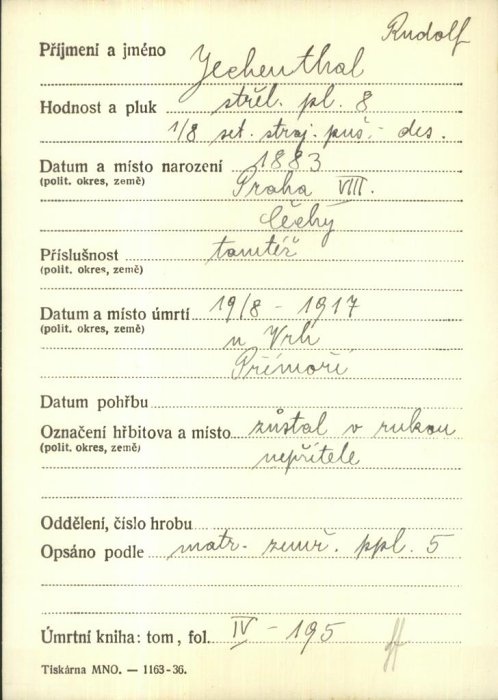 Rudolf
Příjmení a jméno Jechenthal
Hodnost a pluk střel. pl. 8
1/8 set. stroj. puš. - des.
Datum a místo narození 1883
(polit. okres, země) Praha VIII.
Čechy
Příslušnost tamtéž
(polit. okres, země)
Datum a místo úmrtí 19/8 - 1917
(polit. okres, země) u Vrh
Přímoří
Datum pohřbu
Označení hřbitova a místo zůstal v rukou
(polit. okres, země) nepřítele
Oddělení, číslo hrobu
Opsáno podle matr. zemř. ppl. 5
Úmrtní kniha: tom, fol. IV - 195
Tiskárna MNO. — 1163-36.